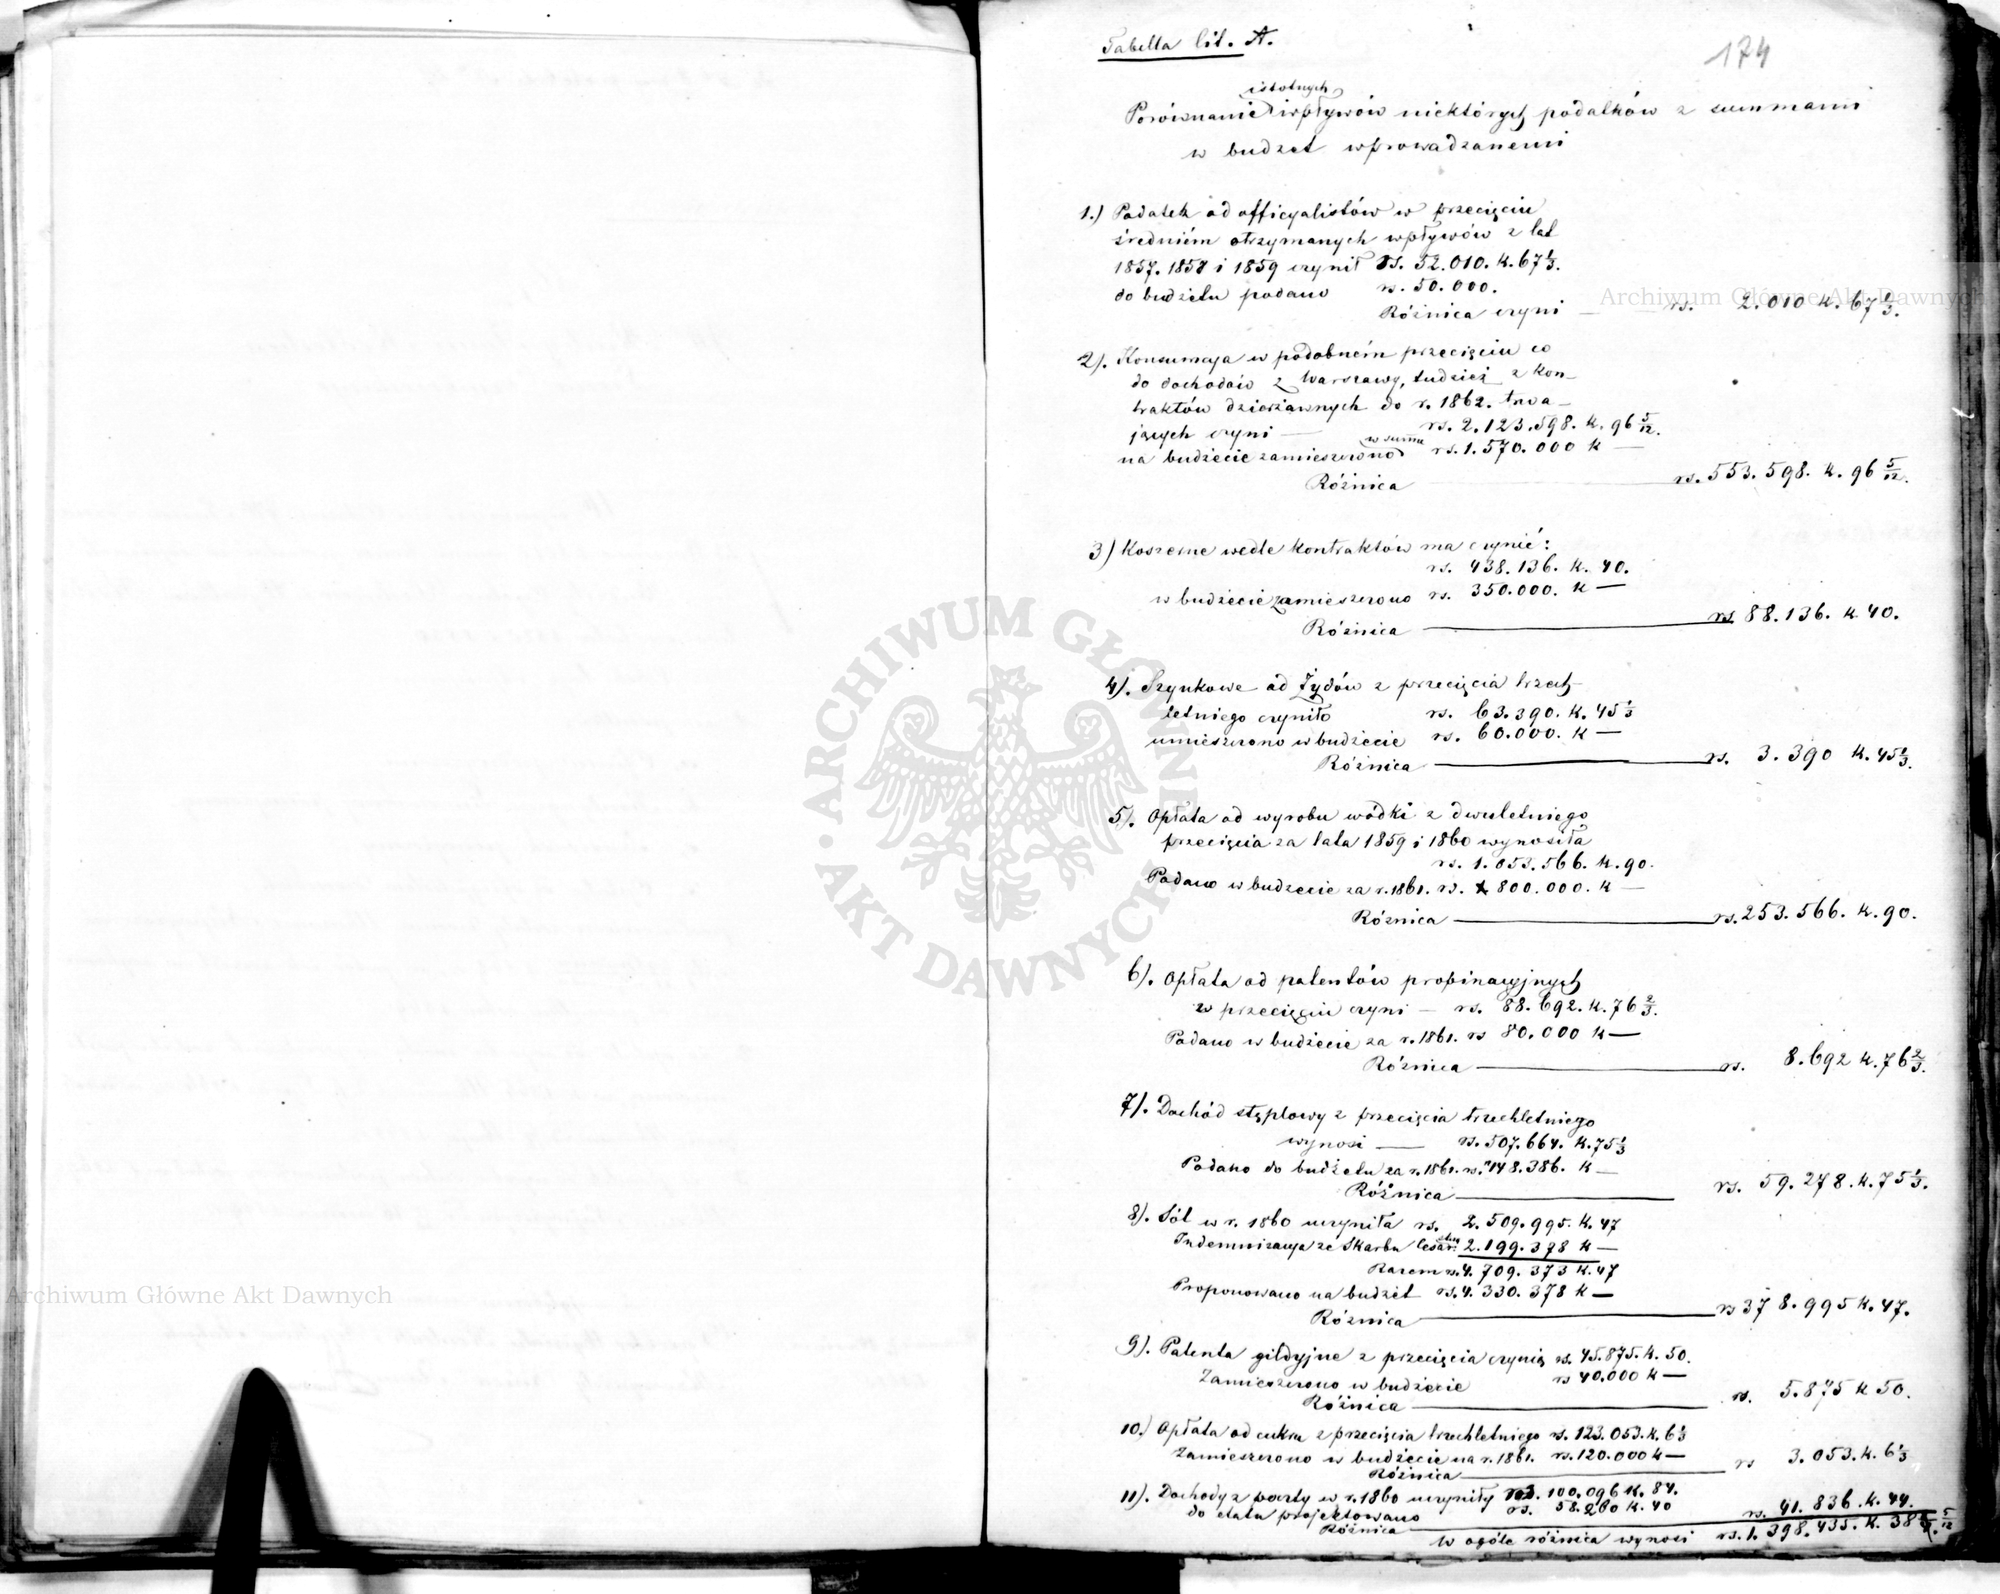 Tabella lit. A.
174
istotnych
Porównanie wpływów niektórych podatków z summami
w budżet wprowadzanemi
1.) Podatek od officyalistów w przecięciu
średniém otrzymanych wpływów z lat
1857. 1858 i 1859 czynił rs. 52.010. k. 67 1/3.
do budżetu podano rs. 50.000.
Różnica czyni — rs. 2.010 k. 67 1/3.
2). Konsumcja w podobném przecięciu co
do dochodów z Warszawy, tudzież z kon-
traktów dzierżawnych do r. 1862. trwa-
jących czyni — rs. 2.123.598. k. 96 5/12.
w summie
na budżecie zamieszczono rs. 1.570.000 k —
Różnica rs. 553.598. k. 96 5/12.
3) Koszerne wedle kontraktów ma czynić:
rs. 438.136. k. 40.
w budżecie zamieszczono rs. 350.000. k —
Różnica — rs 88.136. k. 40.
4). Szynkowe od Żydów z przecięcia trzech-
letniego czyniło rs. 63.390. k. 45 1/3
umieszczono w budżecie rs. 60.000. k —
Różnica — rs. 3.390 k. 45 1/3.
5). Opłata od wyrobu wódki z dwuletniego
przecięcia za lata 1859 i 1860 wynosiła
rs. 1.053.566. k. 90.
Podano w budżecie za r. 1861. rs. 800.000. k —
Różnica — rs. 253.566. k. 90.
6). Opłata od patentów propinacyjnych
w przecięciu czyni — rs. 88.692. k. 76 2/3.
Podano w budżecie za r. 1861. rs 80.000 k —
Różnica — rs. 8.692 k. 76 2/3.
7). Dochód stęplowy z przecięcia trzechletniego
wynosi — rs. 507.664. k. 75 1/3
Podano do budżetu za r. 1861. rs. 448.386. k —
Różnica — rs. 59.278. k. 75 1/3.
8). Sól w r. 1860 uczyniła rs. 2.509.995. k. 47
Indemnizacya ze Skarbu Cesar. 2.199.378 k —
Razem rs. 4.709.373 k. 47
Proponowano na budżet rs. 4.330.378 k —
Różnica — rs 378.995 k. 47.
9). Patenta gildyjne z przecięcia czynią rs. 45.875. k. 50.
Zamieszczono w budżecie rs 40.000 k —
Różnica — rs. 5.875 k 50.
10.) Opłata od cukru z przecięcia trzechletniego rs. 123.053. k. 6 1/3
Zamieszczono w budżecie na r. 1861. rs. 120.000 k —
Różnica — rs 3.053. k. 6 1/3
11). Dochody z poczty w r. 1860 uczyniły rs. 100.096 k. 84.
do etatu projektowano rs. 58.260 k. 40
Różnica — rs. 41.836. k. 44.
W ogóle różnica wynosi rs. 1.398.435. k. 38 5/12
Archiwum Główne Akt Dawnych
Archiwum Główne Akt Dawnych
ARCHIWUM GŁÓWNE
AKT DAWNYCH